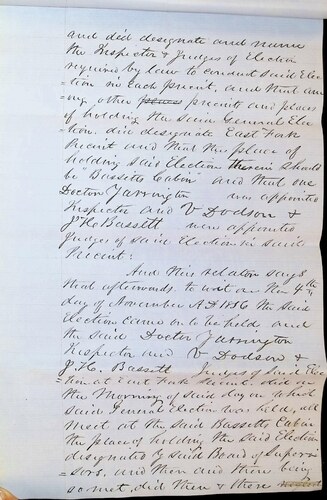 and did designate and name
the Inspector & Judges of Election
required by law to conduct said Elec
=tion in each Precinct, and that am
=ong other precinct and places
of holding the said General Elec
tion. did designate East Fork
Precinct and that the place of
holding said Election therein should
be "Bassetts Cabin" and that one
Doctor Yarrington was appointed
Inspector and V Dodson &
J. H. Bassett were appointed
Judges of said Election in said
Precinct:
And this relator says
that afterwards to wit on the 4th
day of November A.D. 1856 the said
Election came on to be held, and
the said Doctor Yarrington
Inspector and V Dodson &
J. H. Bassett Judges of said Elec
=tion at East Fork Precinct did on
the Morning of said day on which
said General Election was held, all
meet at the said Bassetts Cabin
the place of holding the said Election
designated by said Board of Supervi
=sors, and then and there being
so met, did then & there